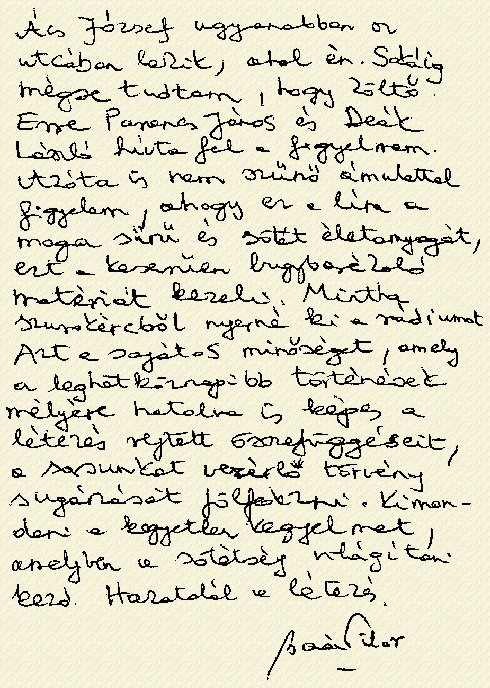 Ács József ugyanabban az
utcában lakik, ahol én. Sokáig
mégse tudtam, hogy költő.
Erre Parancs János és Deák
László hívta fel a figyelmem.
Azóta is nem szűnő ámulattal
figyelem, ahogy ez a líra a
maga sűrű és sötét életanyagát,
ezt a keserűen bugyborékoló
matériát kezeli. Mintha
szurokércből nyerné ki a rádiumot
Azt a sajátos minőséget, amely
a leghétköznapibb történések
mélyére hatolva is képes a
létezés rejtett összefüggéseit,
a sorsunkat vezérlő törvény
sugárzását fölfedezni. Kimon-
dani a kegyetlen kegyelmet,
amelyben a sötétség világítani
kezd. Hazatalál a létezés.